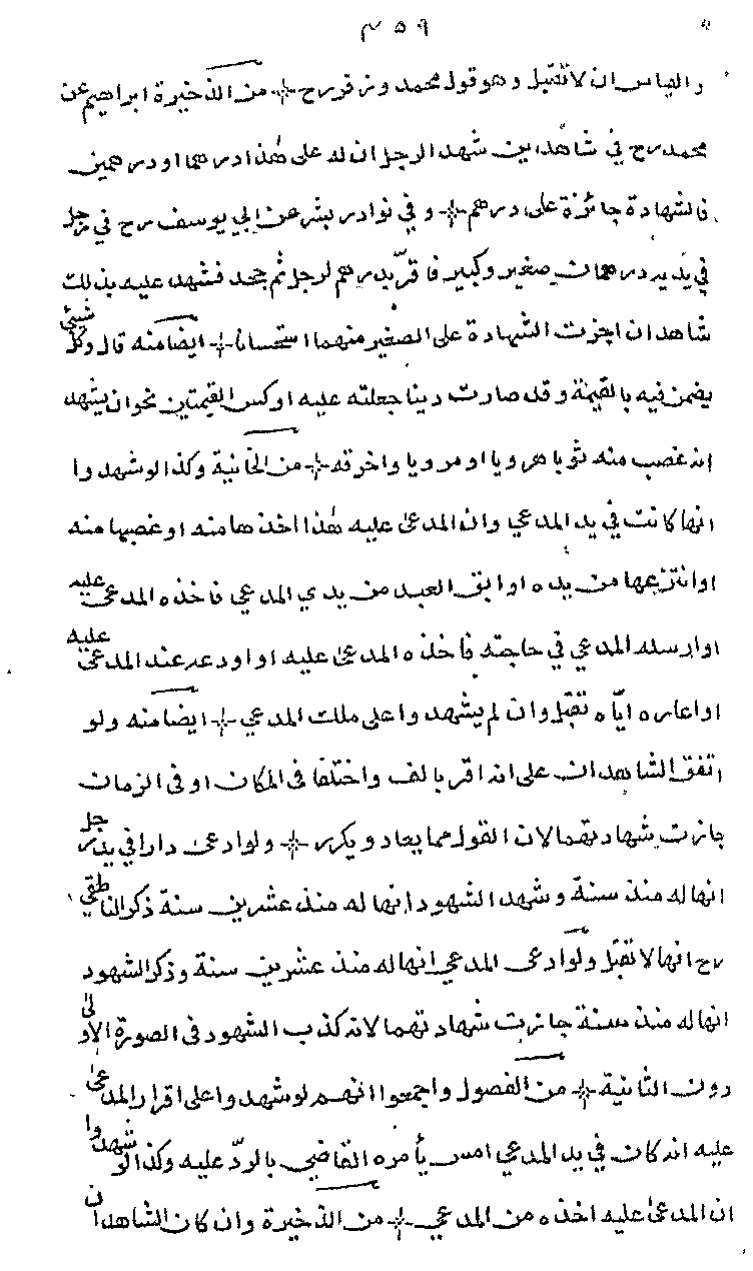 ٣٥٩
والقياس ان لا تقبل وهو قول محمد وزفر رح ÷ من الذخيرة ابراهيم عن
محمد رح في شاهدين شهد الرجل ان له على هذا درهما او درهمين
فالشهادة جائزة على درهم ÷ وفي نوادر بشر عن ابي يوسف رح في رجل
في يديه درهمان صغير وكبير فاقر بدرهم لرجل ثم جحد فشهد عليه بذلك
شاهدان اجزت الشهادة على الصغير منهما استحسانا ÷ ايضا منه قال وكل شيئ
يضمن فيه بالقيمة وقد صارت دينا جعلته عليه اوكس القيمتين نحو ان يشهد
انه غصب منه ثوبا هرويا او مرويا واخرقه ÷ من الخانية وكذا لو شهدوا
انها كانت في يد المدعي وان المدعى عليه هذا اخذها منه او غصبها منه
او انتزعها من يده او ابق العبد من يدي المدعي فاخذه المدعى عليه
او ارسله المدعي في حاجته فاخذه المدعى عليه او اودعه عند المدعى عليه
او اعاره اياه تقبل وان لم يشهدوا على ملك المدعي ÷ ايضا منه ولو
اتفق الشاهدان على انه اقر بالف واختلفا فى المكان او فى الزمان
جازت شهادتهما لان القول مما يعاد ويكرر ÷ ولو ادعى دارا في يد رجل
انها له منذ سنة وشهد الشهود انها له منذ عشرين سنة ذكر الناطقي
رح انها لا تقبل ولو ادعى المدعي انها له منذ عشرين سنة وذكر الشهود
انها له منذ سنة جازت شهادتهما لانه كذب الشهود فى الصورة الاولى
دون الثانية ÷ من الفصول واجمعوا انهم لو شهدوا على اقرار المدعى
عليه انه كان في يد المدعي امس يأمره القاضي بالردّ عليه وكذا لو شهدوا
ان المدعى عليه اخذه من المدعي ÷ من الذخيرة وان كان الشاهدان